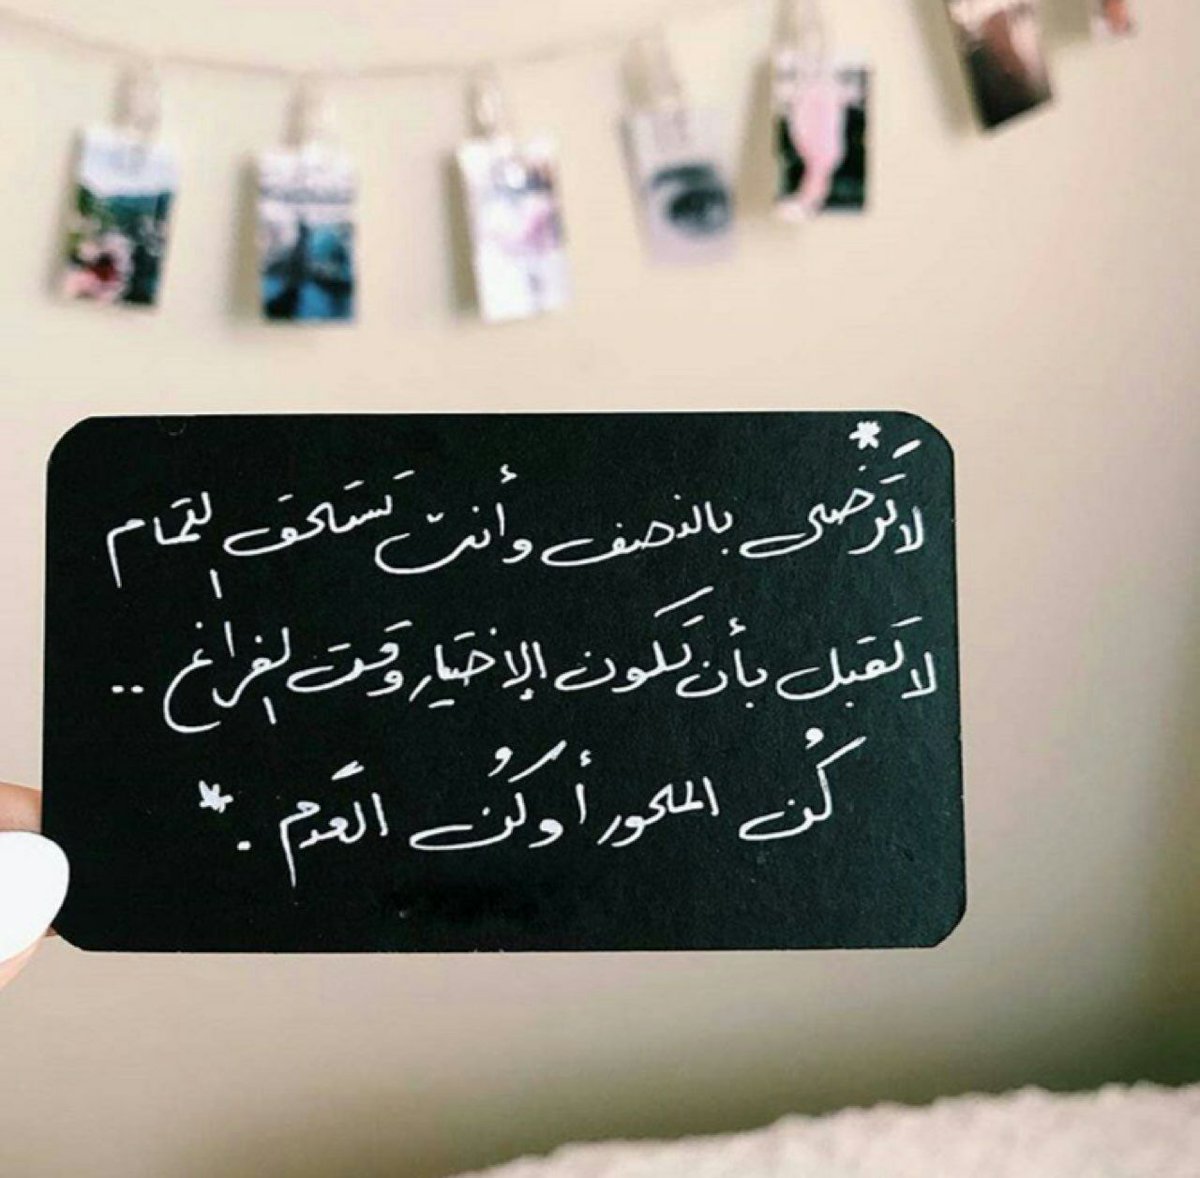 * لا تَرضَى بالنصف وأنت تَستَحق التَمام
لا تَقبل بأن تَكون الإختيار وقت الفراغ ..
كُن المحور أو كُن العَدم . *